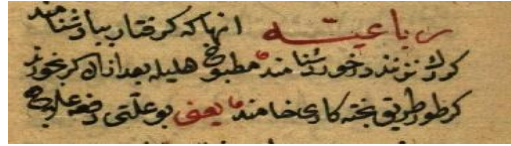 رباعیه انها که کرفتار ببادشنامند
کر رک نزنند در خور دشنامند مطبوخ هلیله بعد ازان کر نخورند
طریق پخته کاری خامند یعنی بو علتی دفعه علاج